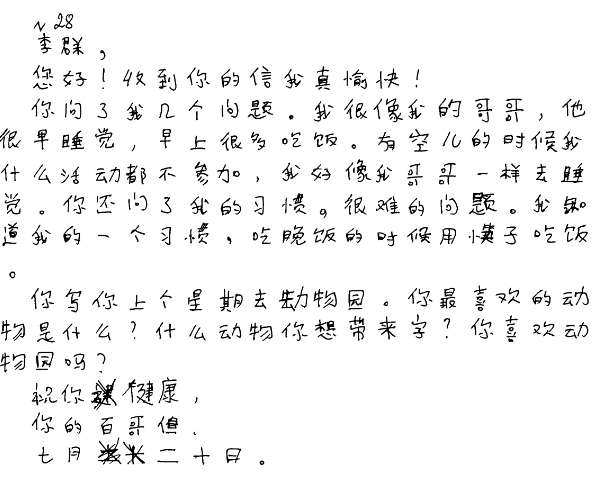 ~ 28
李群，
您好！收到你的信我真愉快！
你问了我几个问题。我很像我的哥哥，他
很早睡觉，早上很多吃饭。有空儿的时候我
什么活动都不参加，我好像我哥哥一样去睡
觉。你还问了我的习惯。很难的问题。我知
道我的一个习惯，吃晚饭的时候用筷子吃饭
。
你写你上个星期去动物园。你最喜欢的动
物是什么？什么动物你想带来字？你喜欢动
物园吗？
祝你健康，
你的百哥但．
七月二十日。